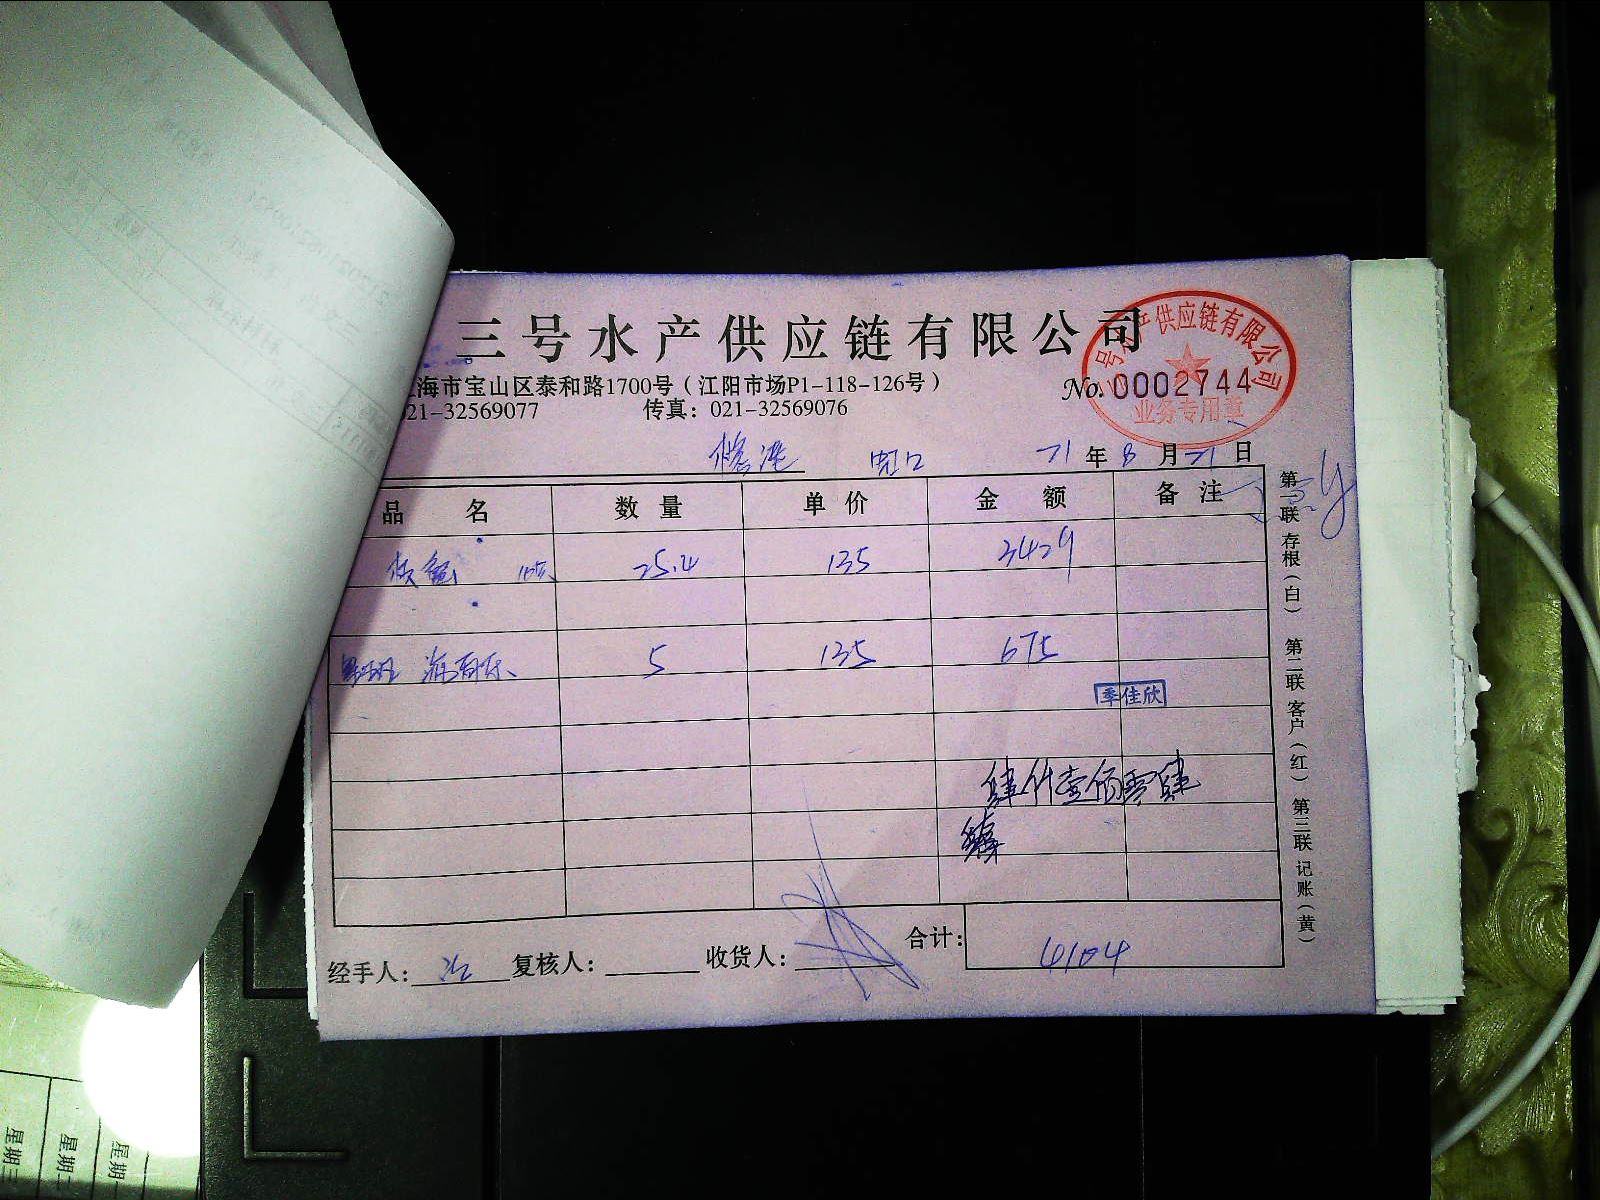 三号水产供应链有限公司
海市宝山区泰和路1700号（江阳市场P1-118-126号）
021-32569077 传真：021-32569076
No. 0002744
号 产供应链有限公司
业务专用章
虹口 21年8月21日
品名 数量 单价 金额 备注
25.4 135 3429
5 135 675
季佳欣
肆仟壹佰零肆
合计： 4104
经手人： 复核人： 收货人：
第一联 存根（白） 第二联 客户（红） 第三联 记账（黄）
星期三 星期二 星期一